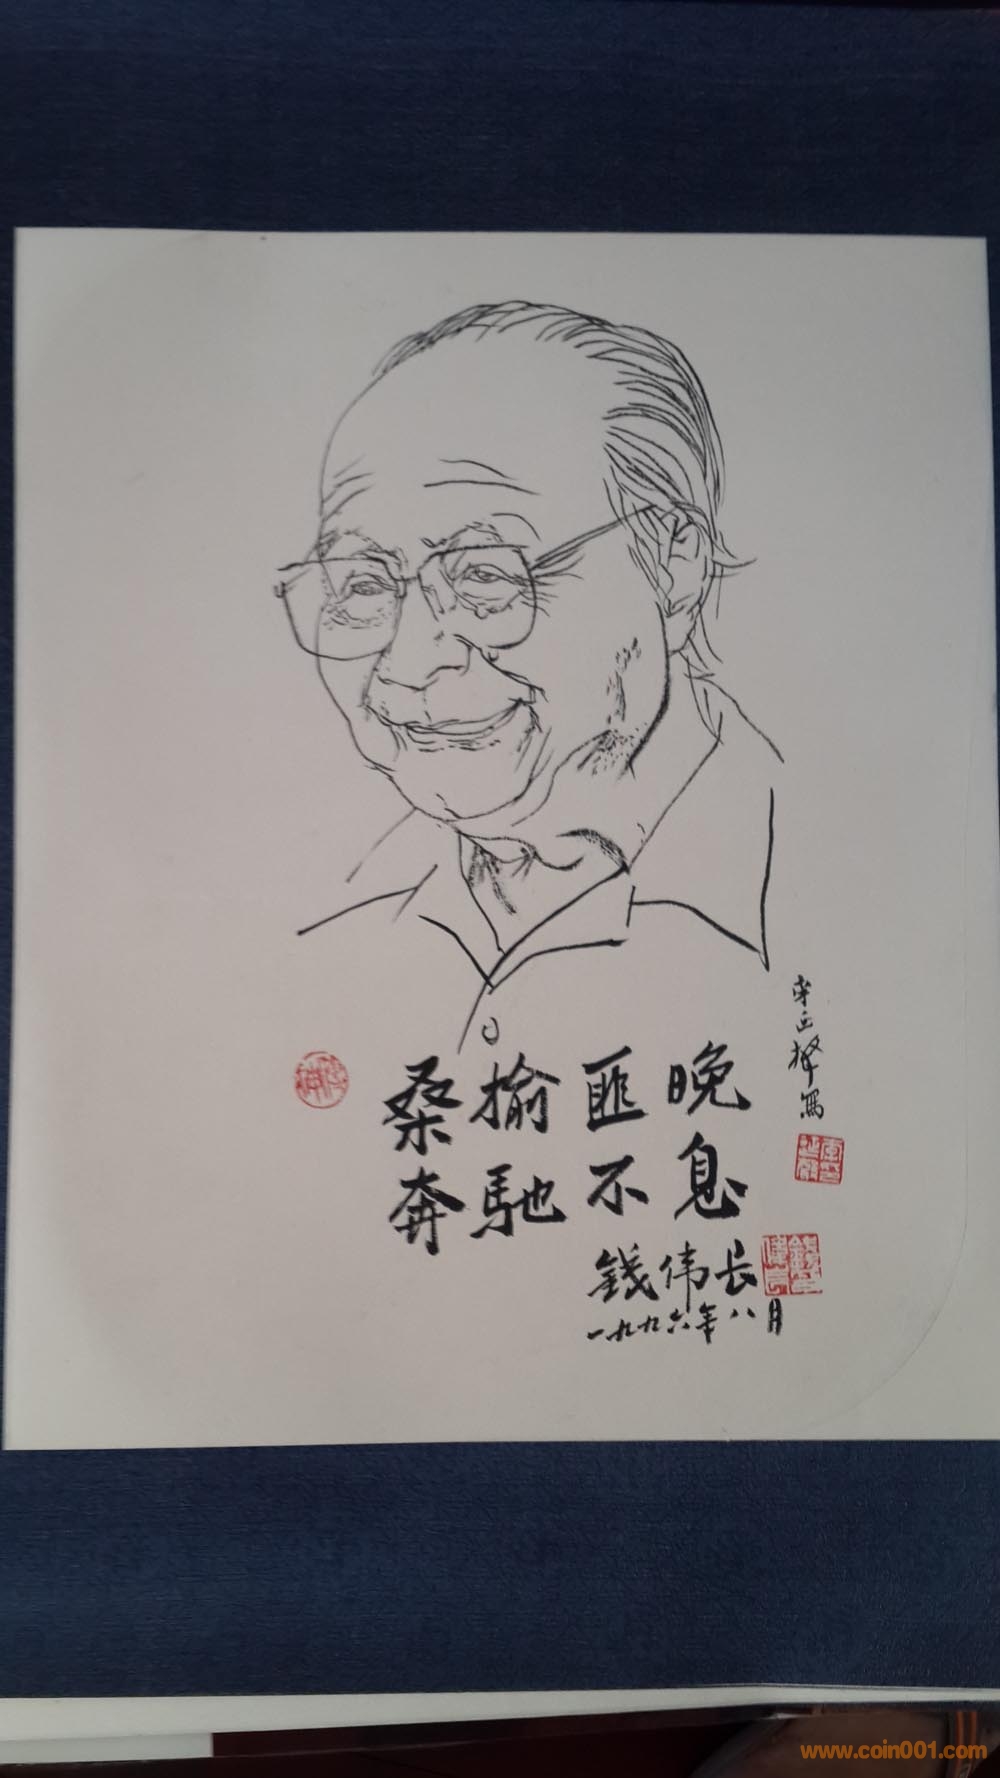 桑榆匪晚
奔馳不息
錢伟长
一九九六年八月
寫
www.coin001.com